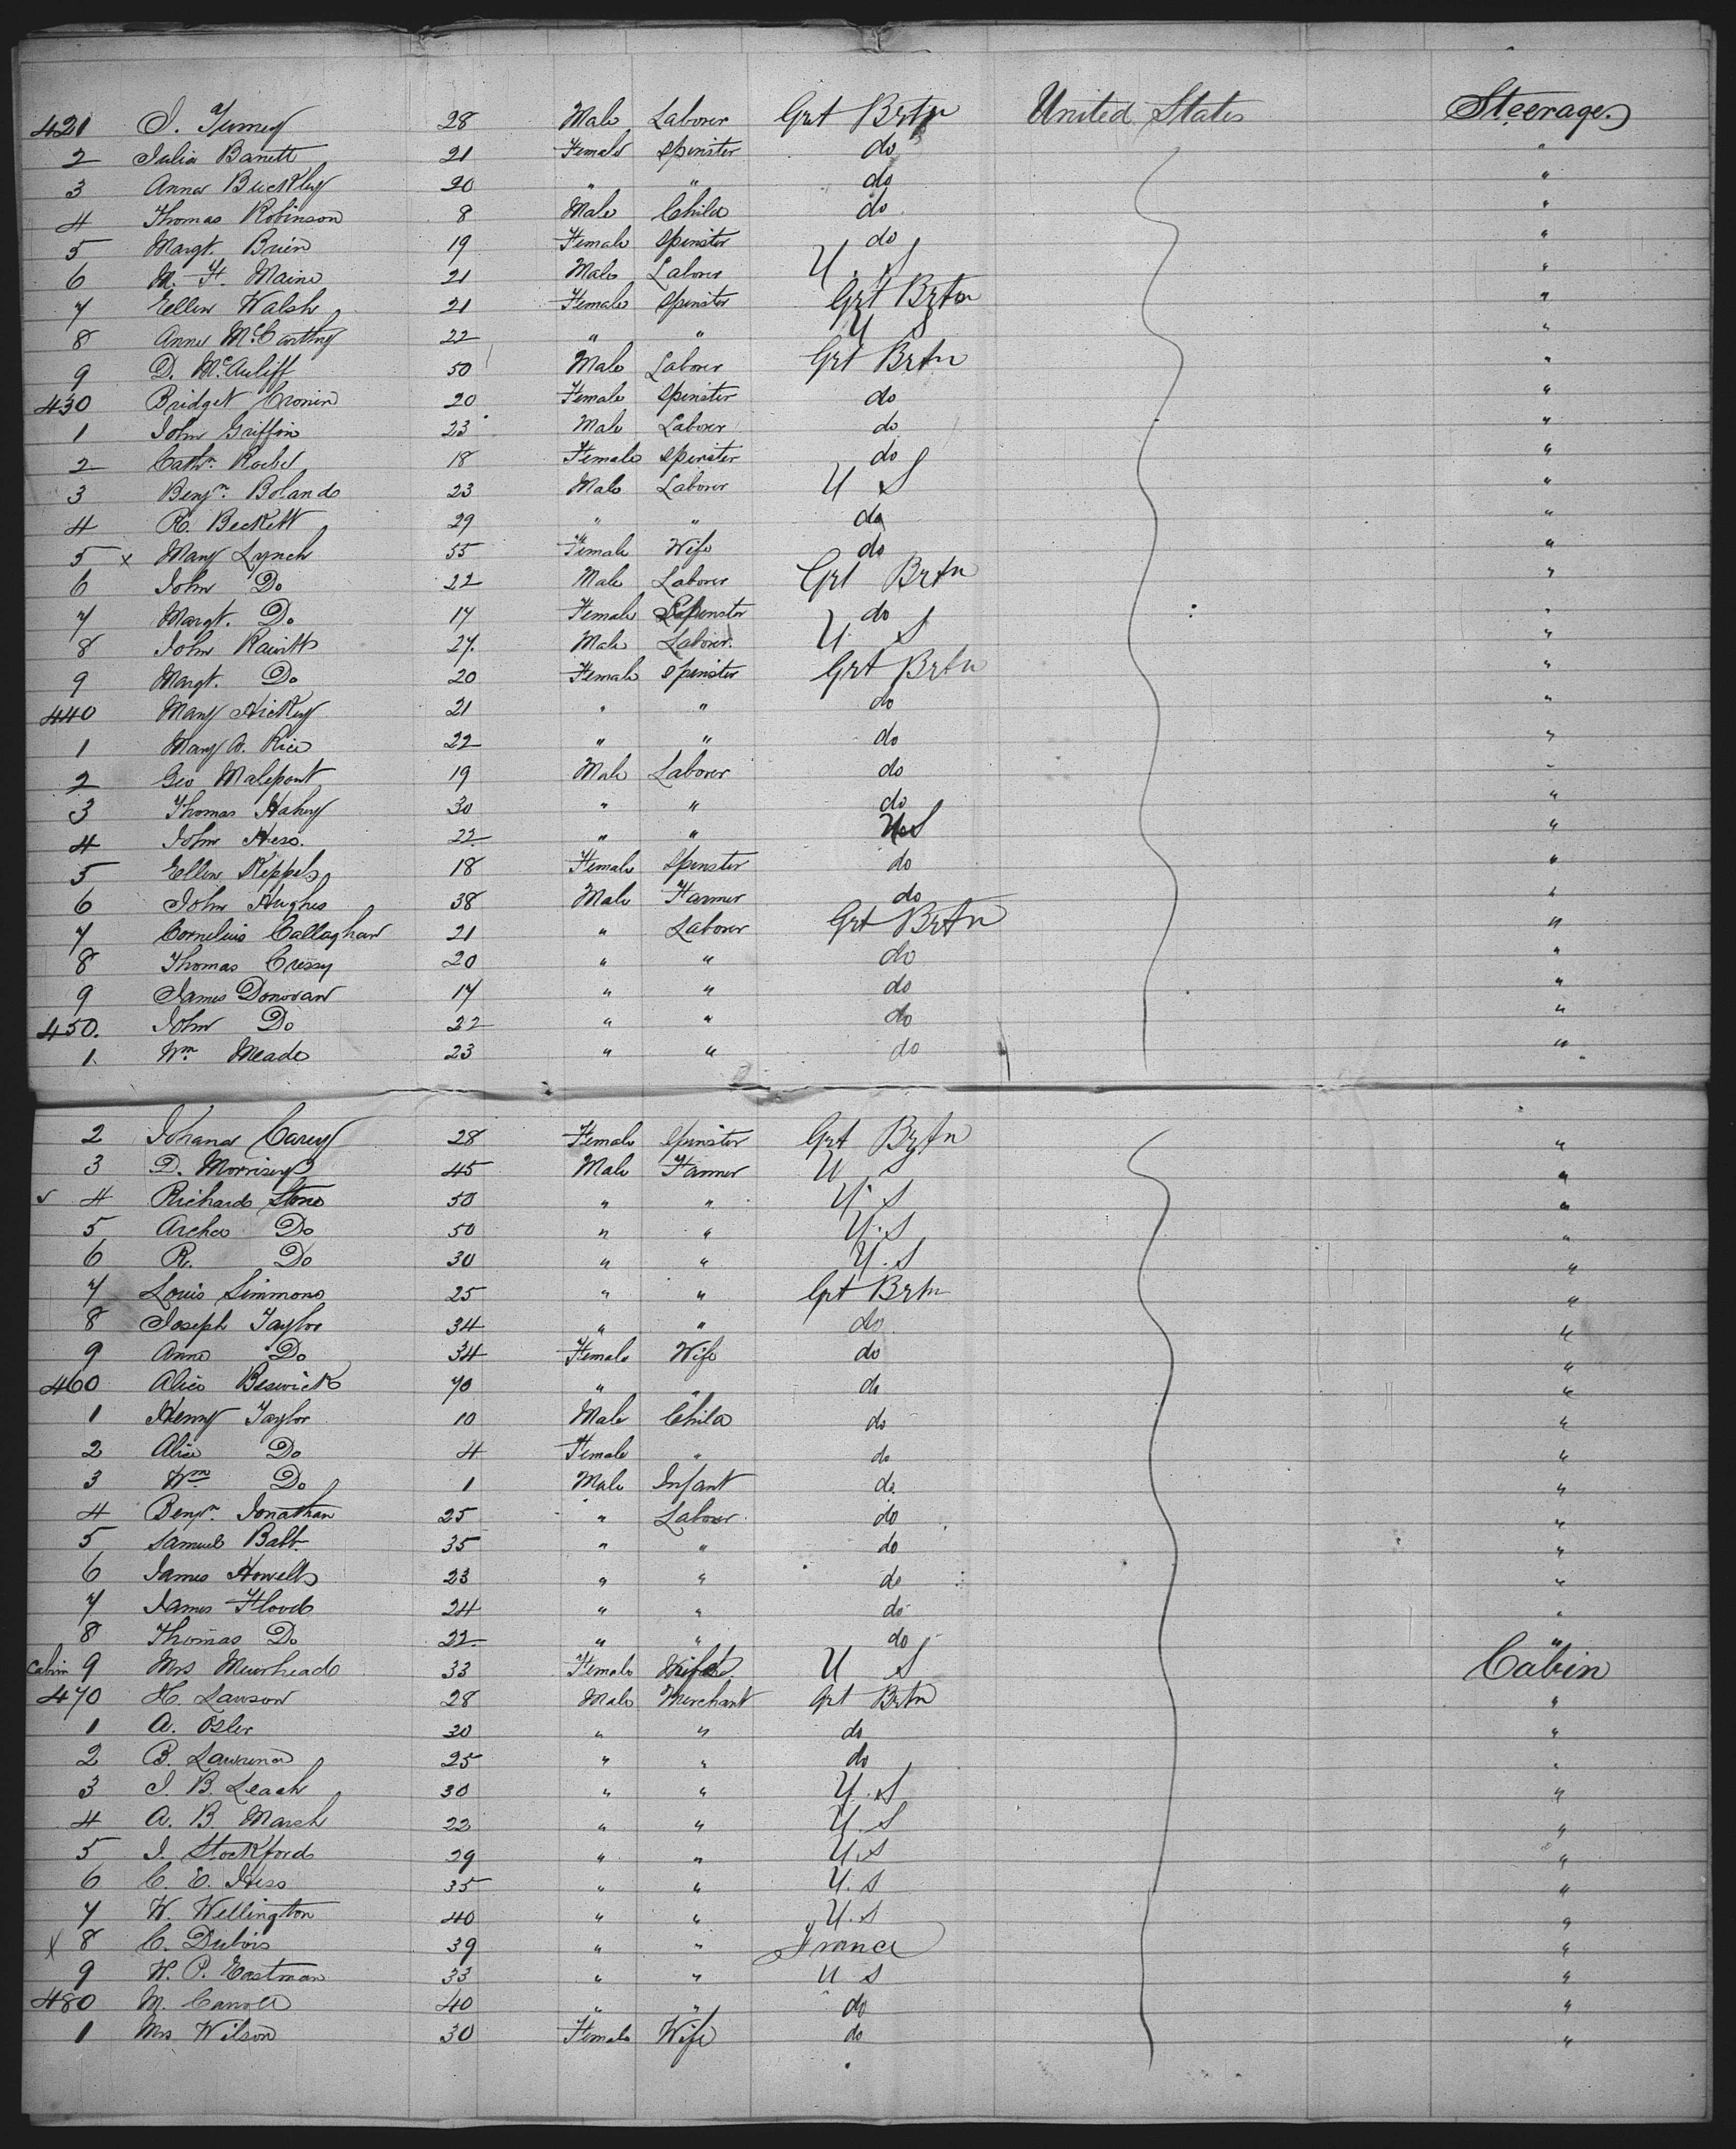 421 J. Turney 28 Male Laborer Grt Brtn United States Steerage
2 Julia Barrett 21 Female Spinster do "
3 Anna Buckley 20 " " do "
4 Thomas Robinson 8 Male Child do "
5 Margt. Brien 19 Female Spinster do "
6 M. F. Maine 21 Male Laborer U. S "
7 Ellen Walsh 21 Female Spinster Grt Brtn "
8 Anne McCarthy 22 " " U S "
9 D. McAuliff 50 Male Laborer Grt Brtn "
430 Bridget Cronin 20 Female Spinster do "
1 John Griffin 23 Male Laborer do "
2 Cathn. 18 Female Spinster do "
3 Benjn. Boland 23 Male Laborer U S "
4 R. Beckett 29 " " do "
5 x Mary Lynch 55 Female Wife do "
6 John Do 22 Male Laborer Grt Brtn "
7 Margt. Do 17 Female Spinster do "
8 John 27. Male Laborer. U. S "
9 Margt. Do 20 Female Spinster Grt Brtn "
440 Mary Hickey 21 " " do "
1 Mary A. Rice 22 " " do "
2 Geo Malepont 19 Male Laborer do "
3 Thomas Hahey 30 " " do "
4 John Hess. 22 " " U S "
5 Ellen Keppels 18 Female Spinster do "
6 John Hughes 38 Male Farmer do "
7 Cornelius Callaghan 21 " Laborer Grt Brtn "
8 Thomas Cressy 20 " " do "
9 James Donovan 17 " " do "
450. John Do 22 " " do "
1. Wm Meade 23 " " do "
2 Johana Carey 28 Female Spinster Grt Brtn "
3 D. Morrisey 45 Male Farmer U S "
4 Richard Stone 50 " " U. S "
5 Archer Do 50 " " U. S "
6 R. Do 30 " " U. S "
7 Louis Simmons 25 " " Grt Brtn "
8 Joseph Taylor 34 " " do "
9 Anne Do 34 Female Wife do "
460 Alice Beswick 70 " " do "
1 Henry Taylor 10 Male Child do "
2 Alice Do 4 Female " do "
3 Wm Do 1 Male Infant do "
4 Benjn. Jonathan 25 " Laborer do "
5 Samuel Babb 35 " " do "
6 James Howells 23 " " do "
7 James Flood 24 " " do "
8 Thomas Do 22 " " do "
Cabin 9 Mrs Muirhead 33 Female Wife U S Cabin
470 H. Lawson 28 Male Merchant Grt Brtn "
1 A. Osler 30 " " do "
2 B. Lawrence 25 " " do "
3 J. B. Leach 30 " " U. S "
4 A. B. Marsh 22 " " U. S "
5 J. Stockford 29 " " U. S "
6 C. E. Hess 35 " " U. S "
7 W. Wellington 40 " " U. S "
x 8 C. Dubois 39 " " France "
9 W. P. Eastman 33 " " U S "
480 M. Carroll 40 " " do "
1 Mrs Wilson 30 Female Wife do "